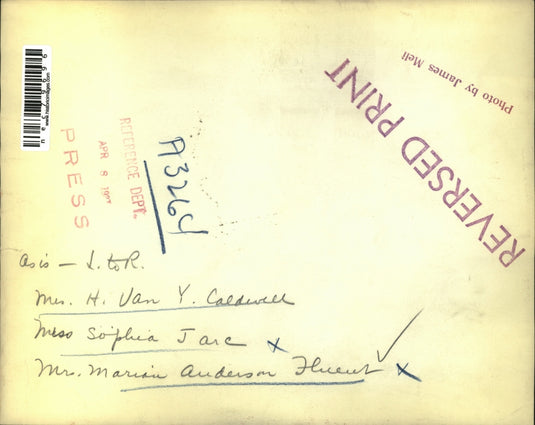 Photo by James Meli
REVERSED PRINT
www.historicimages.com
REFERENCE DEPT.
APR 8
PRESS
A3264
as is – L. to R.
Mrs. H. Van Y. Caldwell
Miss Sophia Jarc x
Mrs. Marian Anderson Fluent x